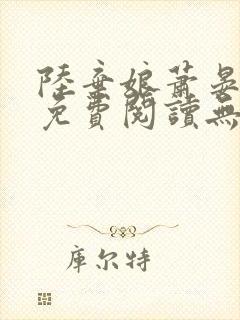 陸棄娘蕭晏
免費閱讀無
庫尔特